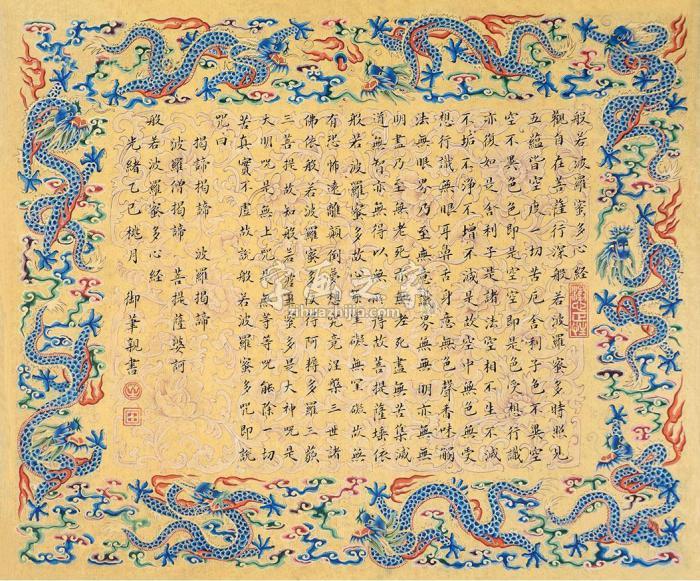 般若波羅蜜多心經
觀自在菩薩行深般若波羅蜜多時照見
五蘊皆空度一切苦厄舍利子色不異空
空不異色色即是空空即是色受想行識
亦復如是舍利子是諸法空相不生不滅
不垢不淨不增不減是故空中無色無受
想行識無眼耳鼻舌身意無色聲香味觸
法無眼界乃至無意識界無無明亦無無
明盡乃至無老死亦無老死盡無苦集滅
道無智亦無得以無所得故菩提薩埵依
般若波羅蜜多故心無罣礙無罣礙故無
有恐怖遠離顛倒夢想究竟涅槃三世諸
佛依般若波羅蜜多故得阿耨多羅三藐
三菩提故知般若波羅蜜多是大神咒是
大明咒是無上咒是無等等咒能除一切
苦真實不虛故說般若波羅蜜多咒即說
咒曰
揭諦揭諦 波羅揭諦
波羅僧揭諦 菩提薩婆訶
般若波羅蜜多心經
光緒乙巳桃月 御筆親書
字画之家
zihuazhijia.com